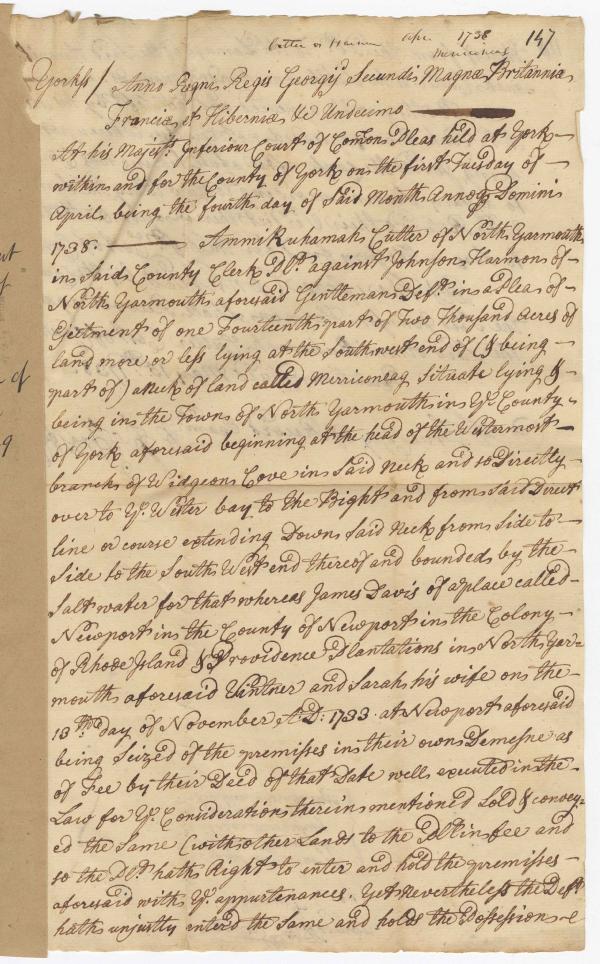 Cutter vs Harmon Apr. 1738 147
Merriconeag
Yorkss/ Anno Regni Regis Georgij Secundi Magnæ Britannia
Franciæ et Hiberniæ &c Undecimo
At his Majest.s Inferiour Court of Com̄on Pleas held at York
within and for the County of York on the first Tuesday of
April being the fourth day of Said Month Annoq Domini
1738. Ammi Ruhamah Cutter of North Yarmouth
in Said County Clerk Pl.t against Johnson Harmon of
North Yarmouth aforesaid Gentleman Def.t in a Plea of
Ejectment of one Fourteenth part of Two Thousand acres of
land more or less lying at the Southwest end of (& being
part of) a Neck of land called Merriconeag Situate lying &
being in the Town of North Yarmouth in Y.e County
of York aforesaid beginning at the head of the Westermost
branch of Widgeon Cove in Said Neck and so Directly
over to Y.e Wester bay to the Bight and from Said Direct
line or course extending Down Said Neck from Side to
Side to the South West end thereof and bounded by the
Salt water for that whereas James Davis of a place called
Newport in the County of Newport in the Colony
of Rhode Island & Providence Plantations in North Yar=
mouth aforesaid Vintner and Sarah his wife on the
13.th day of November A.D: 1733 at Newport aforesaid
being Seized of the premisses in their own Demesne as
of Fee by their Deed of that Date well executed in the
Law for Y.e Consideration therein mentioned Sold & convey=
ed the Same (with other Lands to the Pl.t in fee and
so the Pl.t hath Right to enter and hold the premisses
aforesaid with Y.e appurtenances. Yet Nevertheless the Def.t
hath unjustly enter'd the Same and holds the Possession
of
9